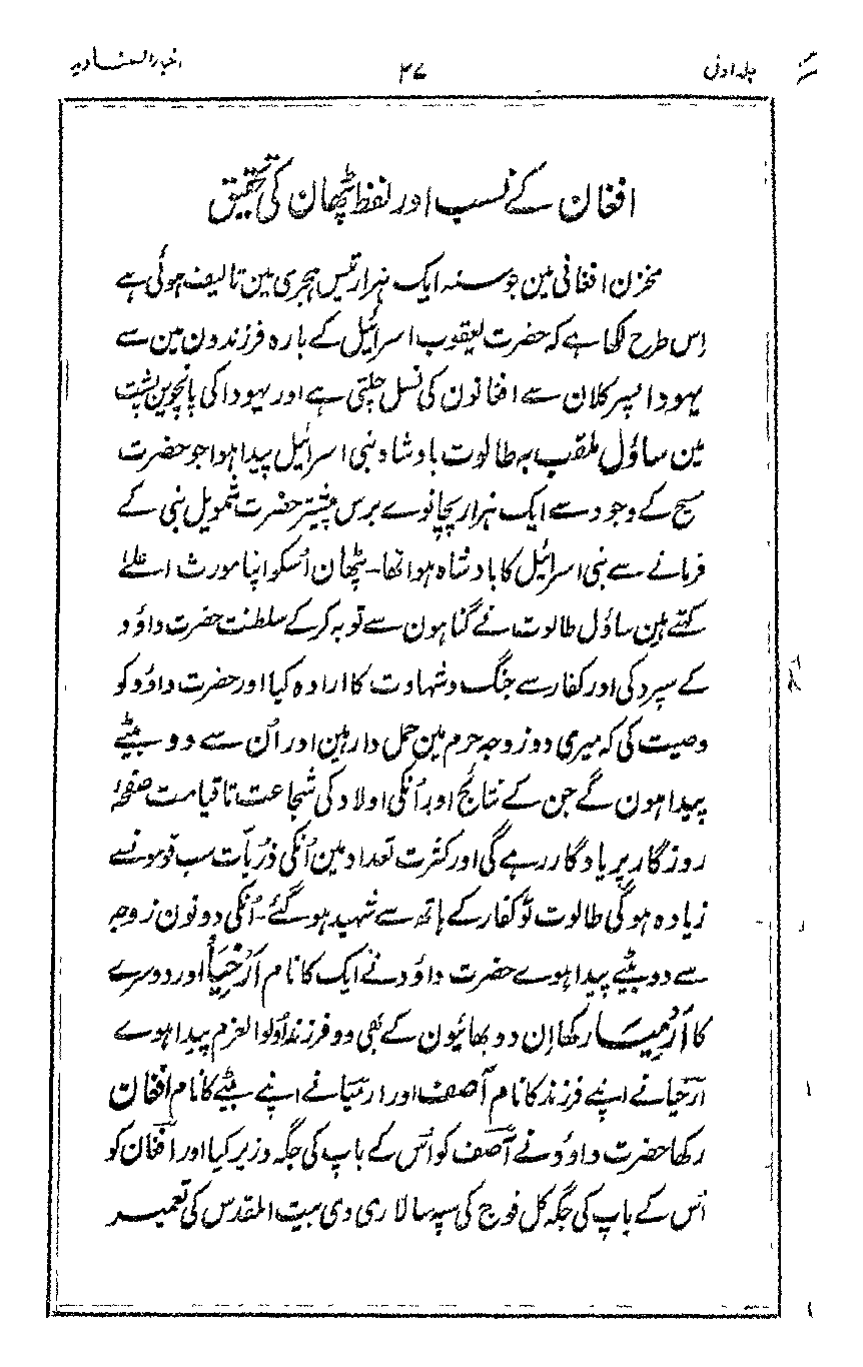 جلد اول ۲۷ اخبار الصنادید
افغان کے نسب اور لفظ پٹھان کی تحقیق
مخزن افغانی مین جو سنہ ایک ہزار تیس ہجری مین تالیف ہوئی ہے
اِس طرح لکھا ہے کہ حضرت یعقوب اسرائیل کے بارہ فرزندون مین سے
یہودا پسر کلان سے افغانون کی نسل چلتی ہے اور یہودا کی پانچوین پشت
مین ساؤل ملقب بہ طالوت بادشاہ بنی اسرائیل پیدا ہوا جو حضرت
مسیح کے وجود سے ایک ہزار پچانوے برس پیشتر حضرت شمویل نبی کے
فرمانے سے بنی اسرائیل کا بادشاہ ہوا تھا۔ پٹھان اُسکو اپنا مورث اعلےٰ
کہتے ہین ساؤل طالوت نے گناہون سے توبہ کرکے سلطنت حضرت داؤد
کے سپرد کی اور کفار سے جنگ و شہادت کا ارادہ کیا اور حضرت داؤد کو
وصیت کی کہ میری دو زوجہ حرم مین حمل دار ہین اور اُن سے دو بیٹے
پیدا ہون گے جن کے نتائج اور اُنکی اولاد کی شجاعت تا قیامت صفحۂ
روزگار پر یادگار رہے گی اور کثرت تعداد مین اُنکی ذُرّیات سب قومونسے
زیادہ ہوگی طالوت تو کفار کے ہاتھ سے شہید ہوگئے۔ اُنکی دونون زوجہ
سے دو بیٹے پیدا ہوے حضرت داؤد نے ایک کا نام اَرْخِیَا اور دوسرے
کا اَرْمِیَا رکھا اِن دو بھائیون کے بھی دو فرزند اُولوالعزم پیدا ہوے
ارخیا نے اپنے فرزند کا نام آصف اور ارمیا نے اپنے بیٹے کا نام افغان
رکھا حضرت داؤد نے آصف کو اُس کے باپ کی جگہ وزیر کیا اور افغان کو
اُس کے باپ کی جگہ کل فوج کی سپہ سالاری دی بیت المقدس کی تعمیر